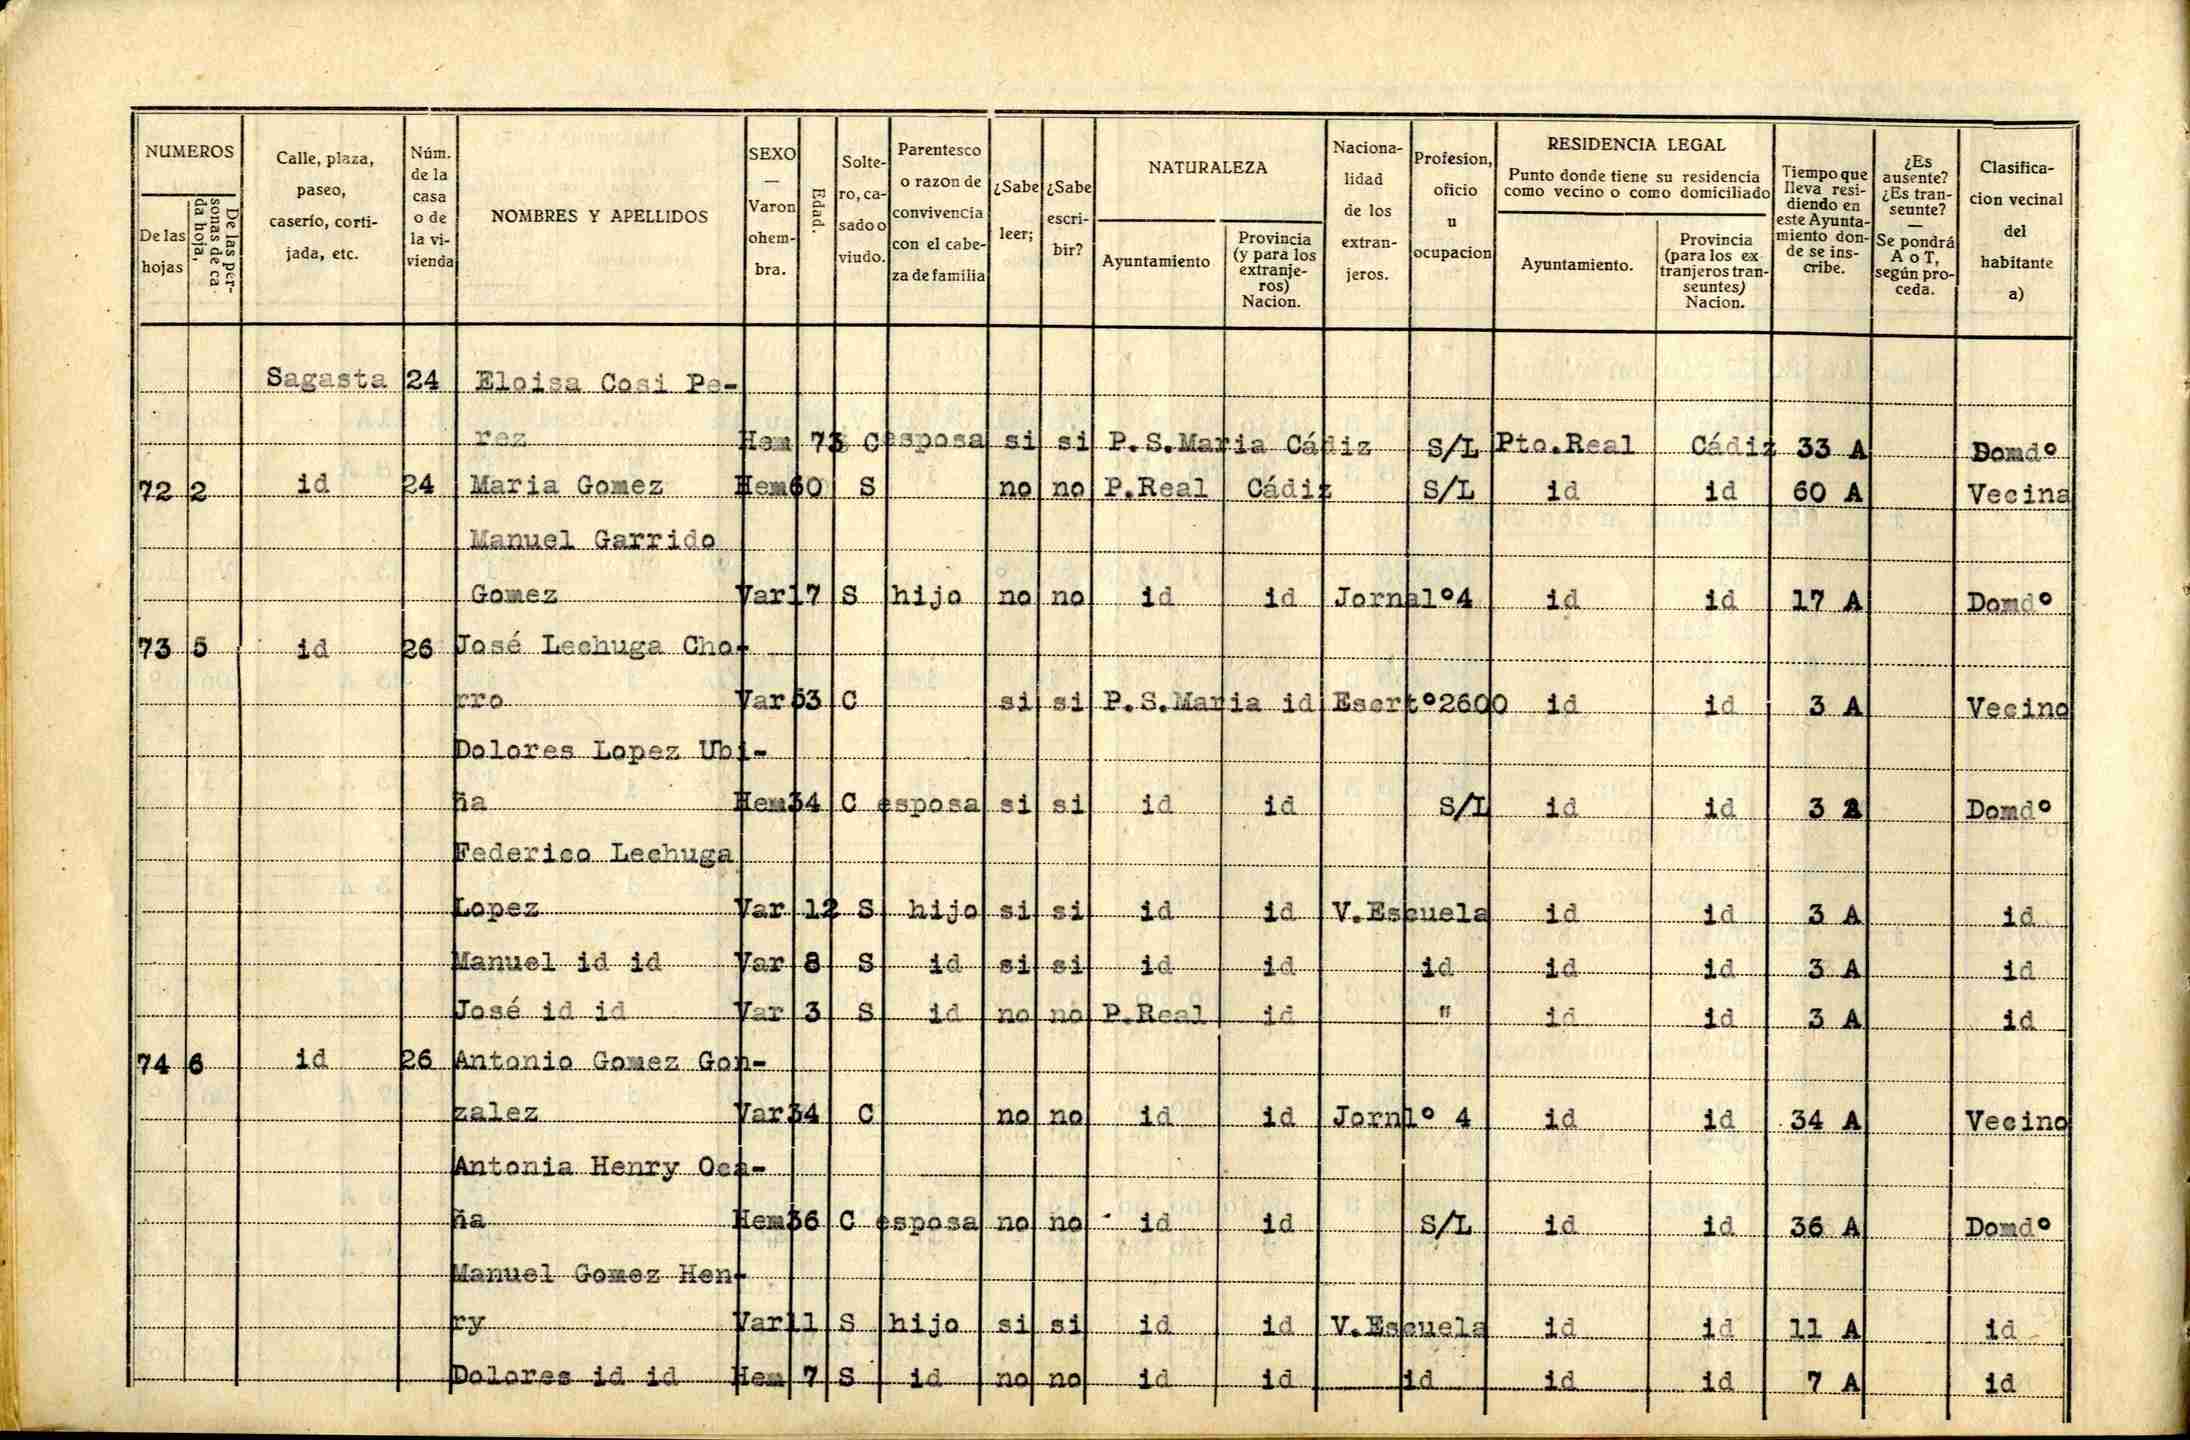 NUMEROS
De las hojas
De las personas de cada hoja,
Calle, plaza, paseo, caserío, cortijada, etc.
Núm. de la casa o de la vivienda
NOMBRES Y APELLIDOS
SEXO — Varon ohembra.
Edad.
Soltero, casado o viudo.
Parentesco o razon de convivencia con el cabeza de familia
¿Sabe leer;
¿Sabe escribir?
NATURALEZA
Ayuntamiento
Provincia (y para los extranjeros) Nacion.
Nacionalidad de los extranjeros.
Profesion, oficio u ocupacion
RESIDENCIA LEGAL
Punto donde tiene su residencia como vecino o como domiciliado
Ayuntamiento.
Provincia (para los ex tranjeros transeuntes) Nacion.
Tiempo que lleva residiendo en este Ayuntamiento donde se inscribe.
¿Es ausente? ¿Es transeunte? — Se pondrá A o T, según proceda.
Clasificacion vecinal del habitante a)
Sagasta 24 Eloisa Cosi Pe-
rez Hem 73 C esposa si si P.S.Maria Cádiz S/L Pto.Real Cádiz 33 A Domdº
72 2 id 24 Maria Gomez Hem 60 S no no P.Real Cádiz S/L id id 60 A Vecina
Manuel Garrido
Gomez Var 17 S hijo no no id id Jornalº4 id id 17 A Domdº
73 5 id 26 José Lechuga Cho-
rro Var 53 C si si P.S.Maria id Escrtº2600 id id 3 A Vecino
Dolores Lopez Ubi-
ña Hem 34 C esposa si si id id S/L id id 3 A Domdº
Federico Lechuga
Lopez Var 12 S hijo si si id id V.Escuela id id 3 A id
Manuel id id Var 8 S id si si id id id id id 3 A id
José id id Var 3 S id no no P.Real id " id id 3 A id
74 6 id 26 Antonio Gomez Gon-
zalez Var 34 C no no id id Jornlº 4 id id 34 A Vecino
Antonia Henry Oca-
ña Hem 36 C esposa no no id id S/L id id 36 A Domdº
Manuel Gomez Hen-
ry Var 11 S hijo si si id id V.Escuela id id 11 A id
Dolores id id Hem 7 S id no no id id id id id 7 A id